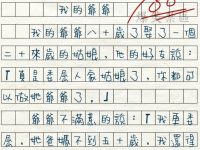 我的爺爺
我的爺爺八十歲了娶了一個
二十來歲的姑娘，他的好友說：
「真是委屈人家姑娘了，你都可
以做她爺爺了。」
爺爺不滿意的說：「我更委
屈，她爸媽不到五十歲，我還得